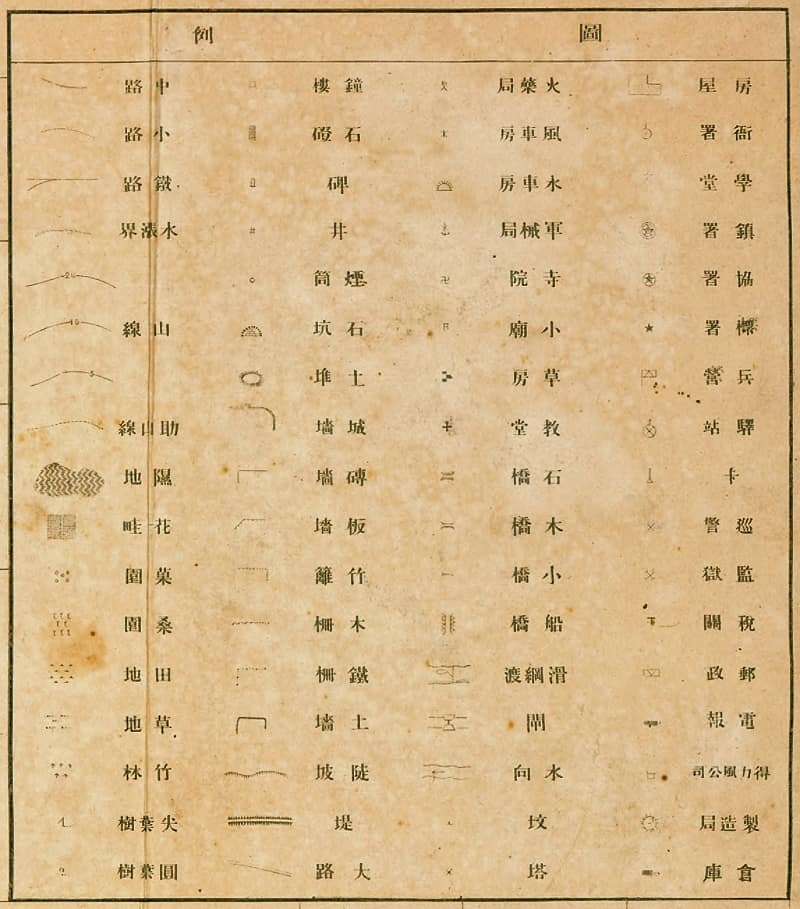 圖例
房屋
衙署
學堂
鎮署
協署
標署
兵營
驛站
卡
巡警
監獄
稅關
郵政
電報
得力風公司
製造局
倉庫
火藥局
風車房
水車房
軍械局
寺院
小廟
草房
教堂
石橋
木橋
小橋
船橋
滑綱渡
閘
水向
坟
塔
鐘樓
石磴
碑
井
煙筒
石坑
土堆
城墻
磚墻
板墻
竹籬
木柵
鐵柵
土墻
陡坡
堤
大路
中路
小路
鐵路
水漲界
20
山線
10
5
助山線
隰地
花畦
菓園
桑園
田地
草地
竹林
尖葉樹
圓葉樹